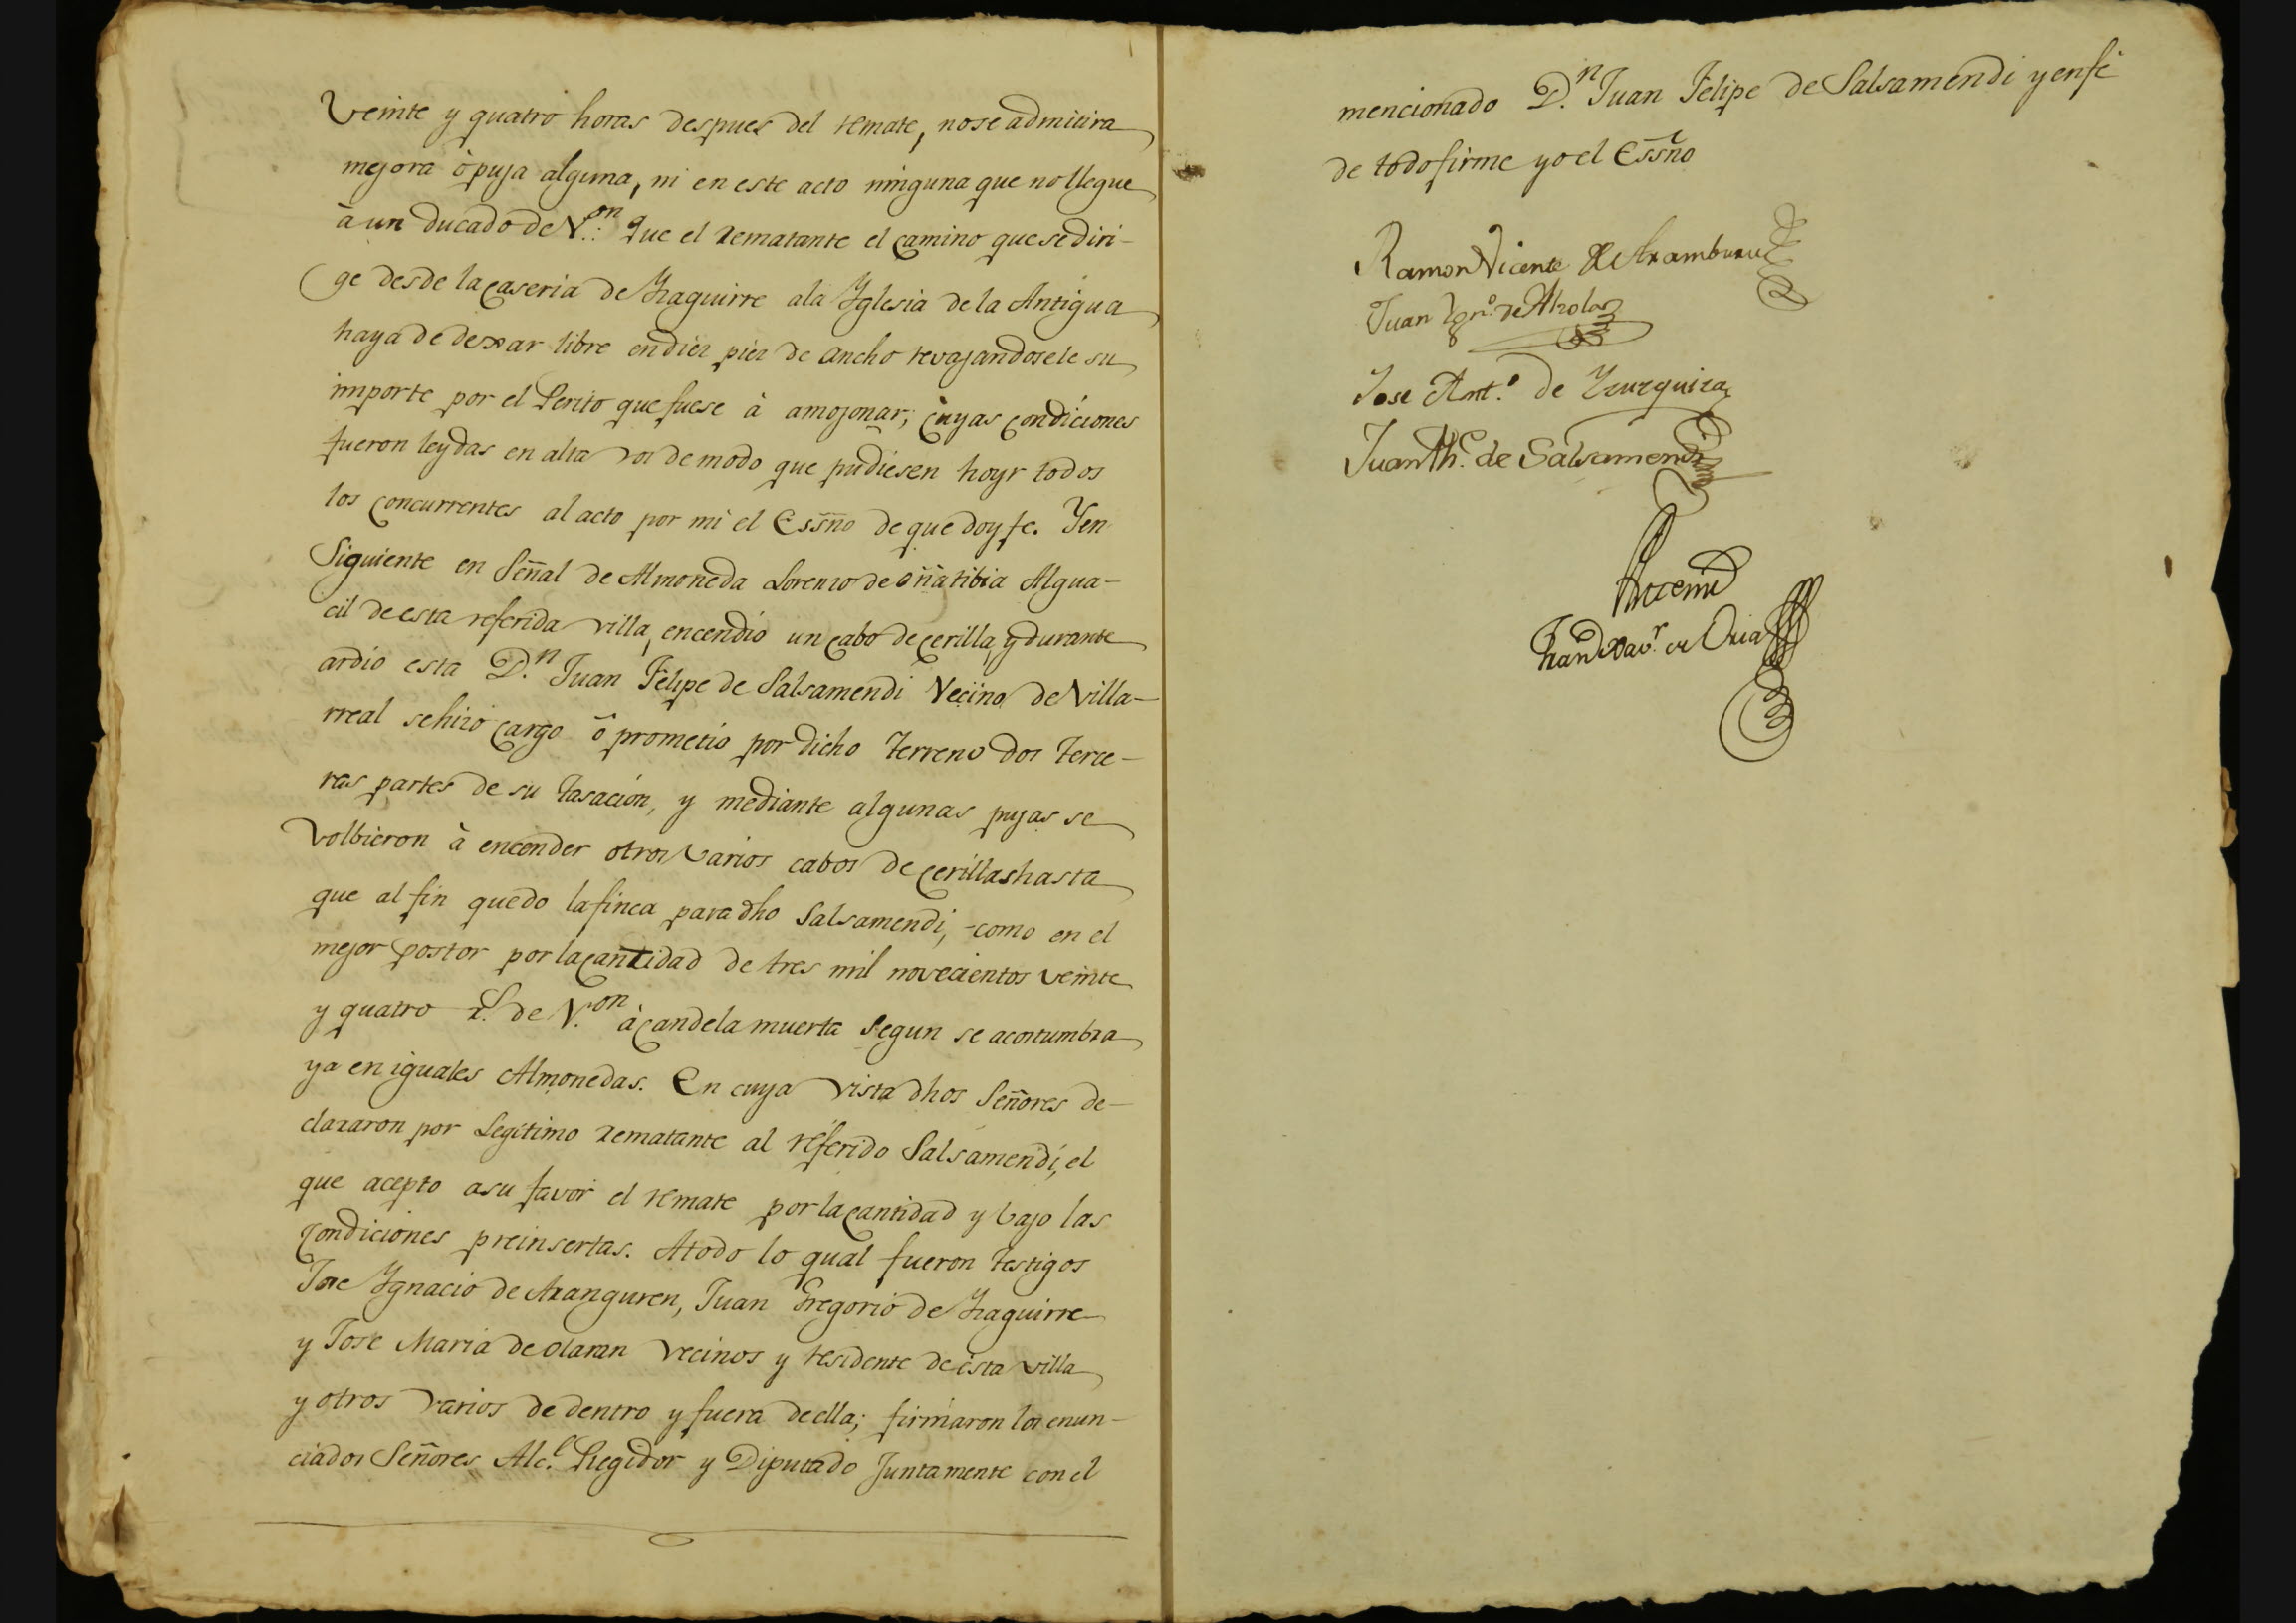 Veinte y quatro horas despues del remate, no se admitira
mejora ò puja alguna, ni en este acto ninguna que no llegue
à un ducado de V.on: que el rematante el camino que se diri-
ge desde la caseria de Yraguirre ala Yglesia de la Antigua
haya de dexar libre en diez piez de ancho revajandosele su
importe por el Perito que fuese à amojonar; cuyas condiciones
fueron leydas en alta voz de modo que pudiesen hoyr todos
los concurrentes al acto por mi el Essño de que doy fe. Yen
Siguiente en Señal de Almoneda Lorenzo de Oñatibia Algua-
cil de esta referida villa, encendio un cabo de cerilla, y durante
ardio esta D.n Juan Felipe de Salsamendi Vecino de Villa-
rreal se hizo cargo ô prometio por dicho terreno dos terce-
ras partes de su tasación, y mediante algunas pujas se
volbieron à encender otros varios cabos de cerillas hasta
que al fin quedo la finca para dho Salsamendi, -como en el
mejor postor por la cantidad de tres mil novecientos veinte
y quatro r.s de V.on à candela muerta segun se acostumbra
ya en iguales Almonedas. En cuya vista dhos Señores de-
clararon por Legitimo rematante al referido Salsamendi, el
que acepto a su favor el remate por la cantidad y bajo las
condiciones preinsertas. A todo lo qual fueron testigos
Jose Ygnacio de Aranguren, Juan Gregorio de Yraguirre
y Jose Maria de Olaran vecinos y residente de esta villa
y otros varios de dentro y fuera de ella; firmaron los enun-
ciados Señores Alc.l Regidor y Diputado Juntamente con el
mencionado D.n Juan Felipe de Salsamendi y en fe
de todo firme yo el Essño
Ramon Vicente de Aramburu
Juan Ygn.o de Alzola
Jose Ant.o de Yzuzquiza
Juan Ph.e de Salsamendi
Antemi
Fran.co Xav.r de Oria